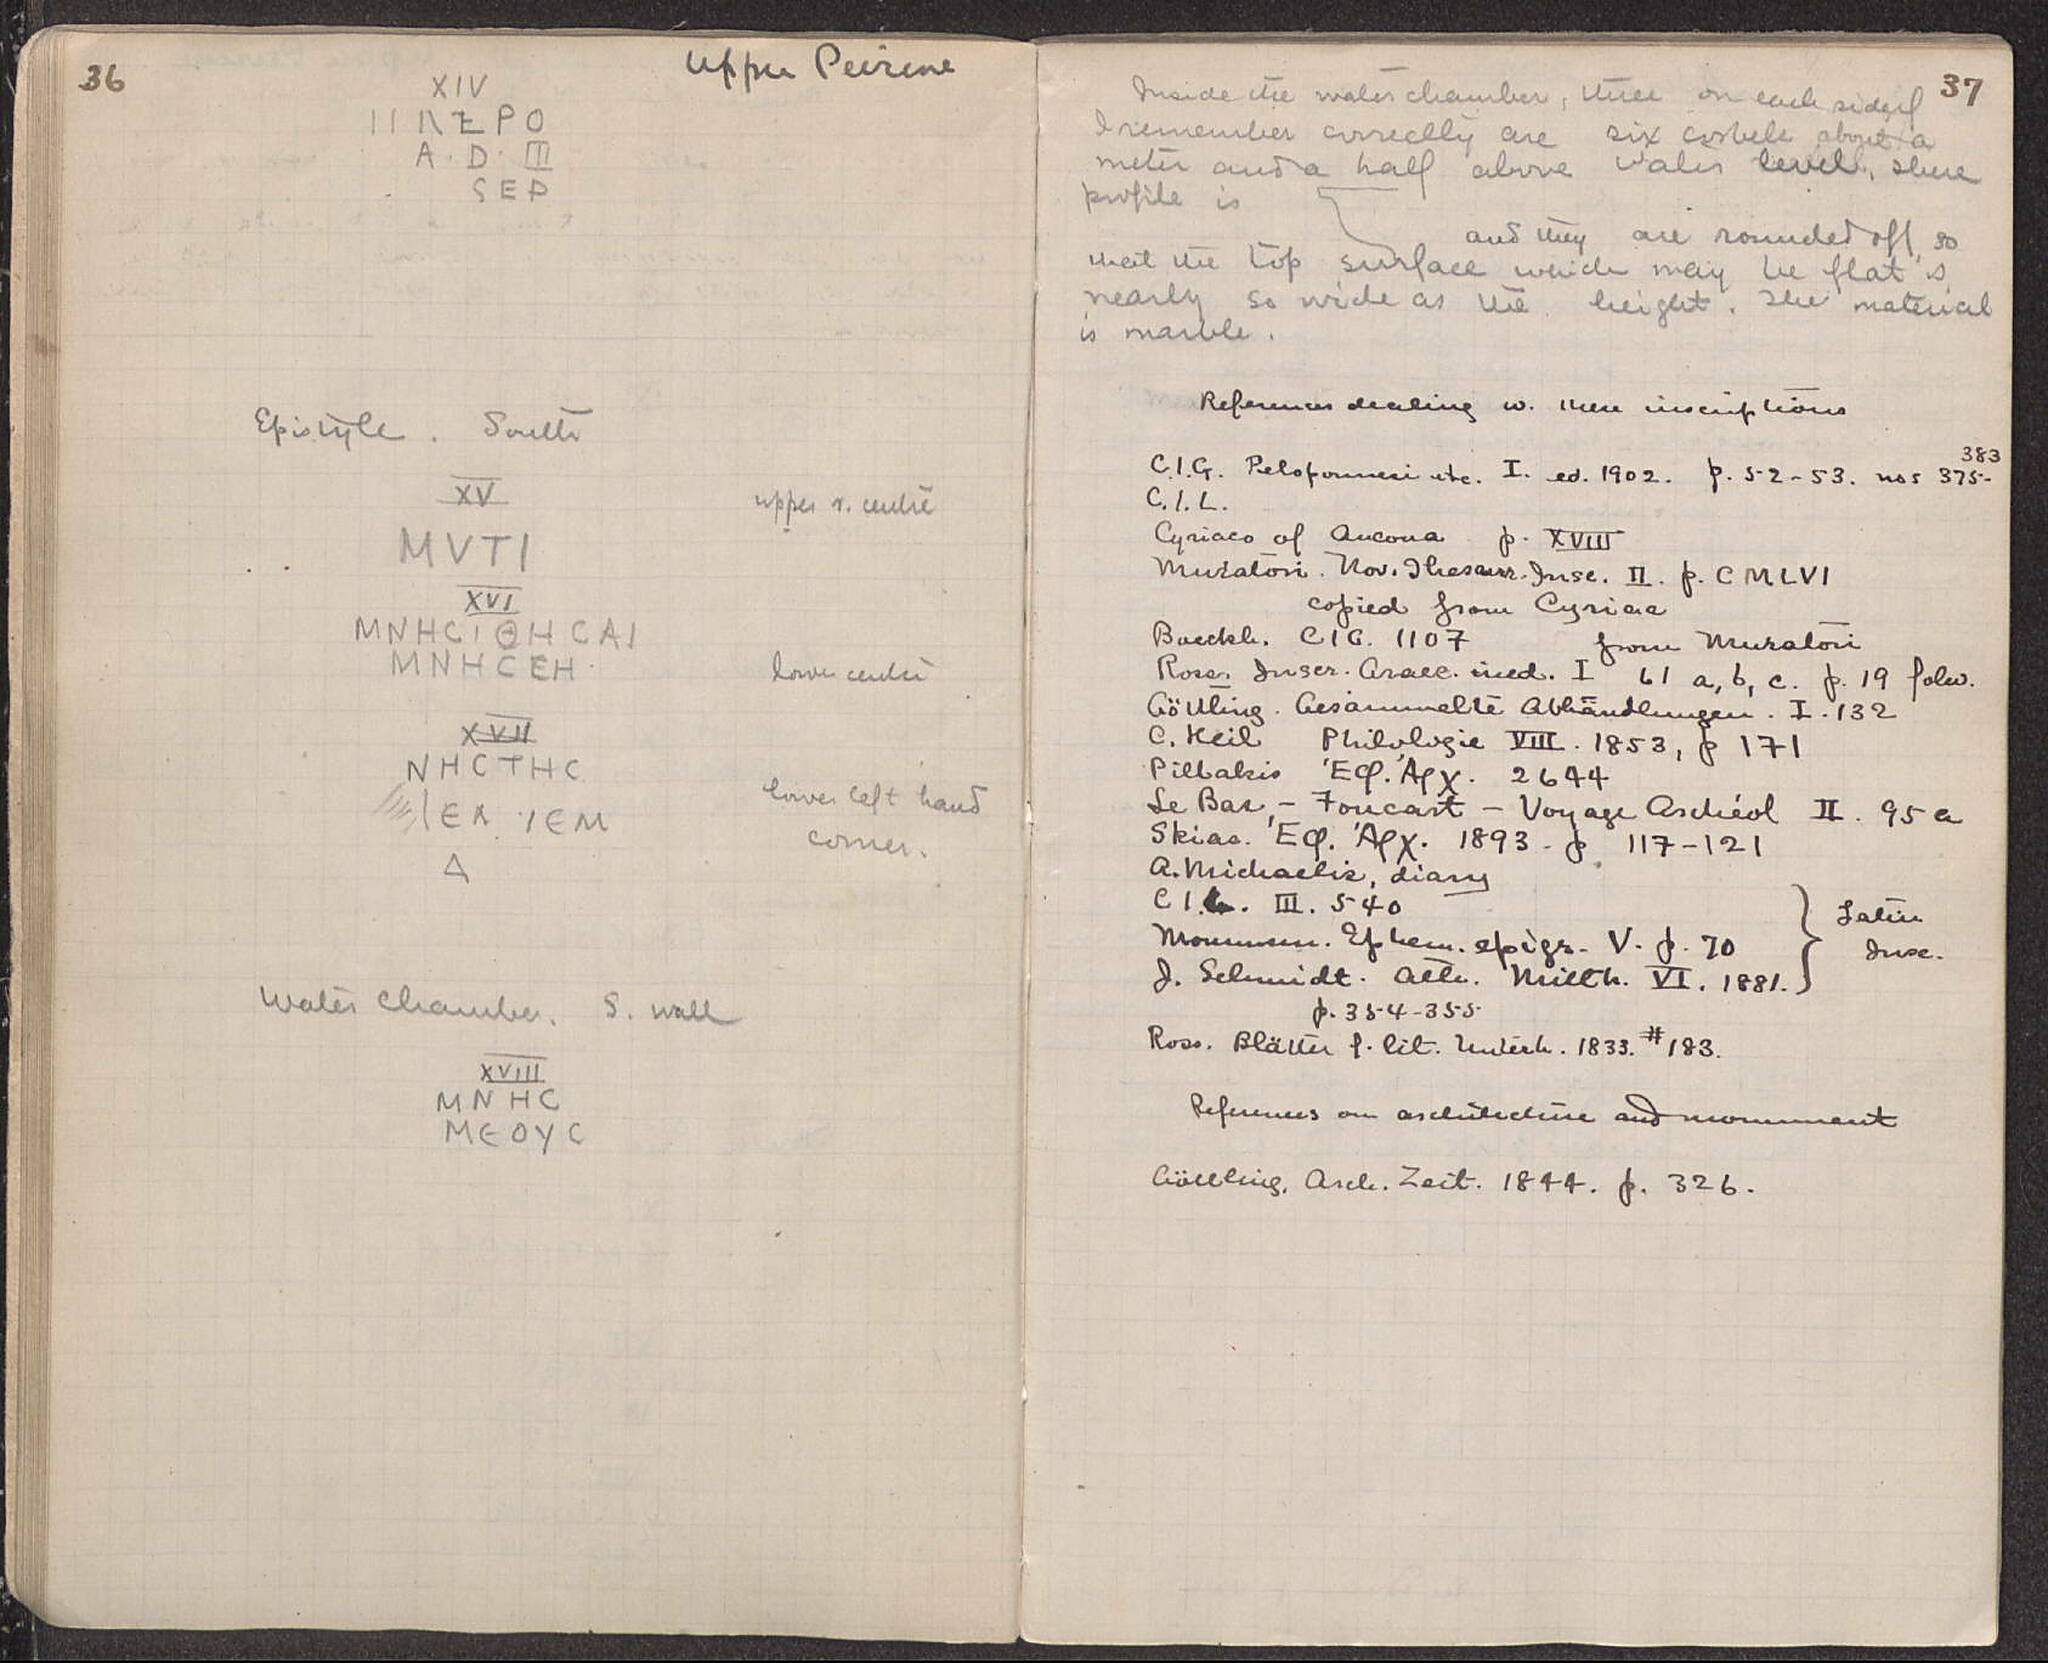 36
Upper Peirene
XIV
A · D · III
SEP
Epistyle. South
XV
upper r. centre
MVTI
XVI
MNHCIΘHCAI
MNHCEH
lower centre
XVII
NHCTHC
lower left hand
corner.
Δ
Water Chamber. S. wall
XVIII
MNHC
MEOYC
37
Inside the water chamber, three on each side if
I remember correctly are six corbels about a
meter and a half above water level, there
profile is
and they are rounded off, so
that the top surface which may be flat is
nearly so wide as the height. The material
is marble.
References dealing w. these inscriptions
383
C.I.G. Peloponnesi etc. I. ed. 1902. p. 52-53. nos 375-
C.I.L.
Cyriaco of Ancona p. XVIII
Muratori. Nov. Thesaur. Insc. II. p. CMLVI
copied from Cyriac
Boeckh. CIG. 1107 from Muratori
Ross. Inscr. Graec. ined. I 61 a, b, c. p. 19 folw.
Göttling. Gesammelte Abhändlungen. I. 132
C. Keil Philologie VIII. 1853, p 171
Pittakis Ἐφ. Ἀρχ. 2644
Le Bas - Foucart - Voyage Archéol II. 95 a
Skias. Ἐφ. Ἀρχ. 1893 - p. 117-121
A. Michaelis, diary
C I L. III. 540
Latin
Mommsen. Ephem. epigr. V. p. 70
Insc.
J. Schmidt. Ath. Mitth. VI. 1881.
p. 354-355
Ross. Blätter f. lit. Unterh. 1833. #183.
References on architecture and monument
Göttling, Arch. Zeit. 1844. p. 326.